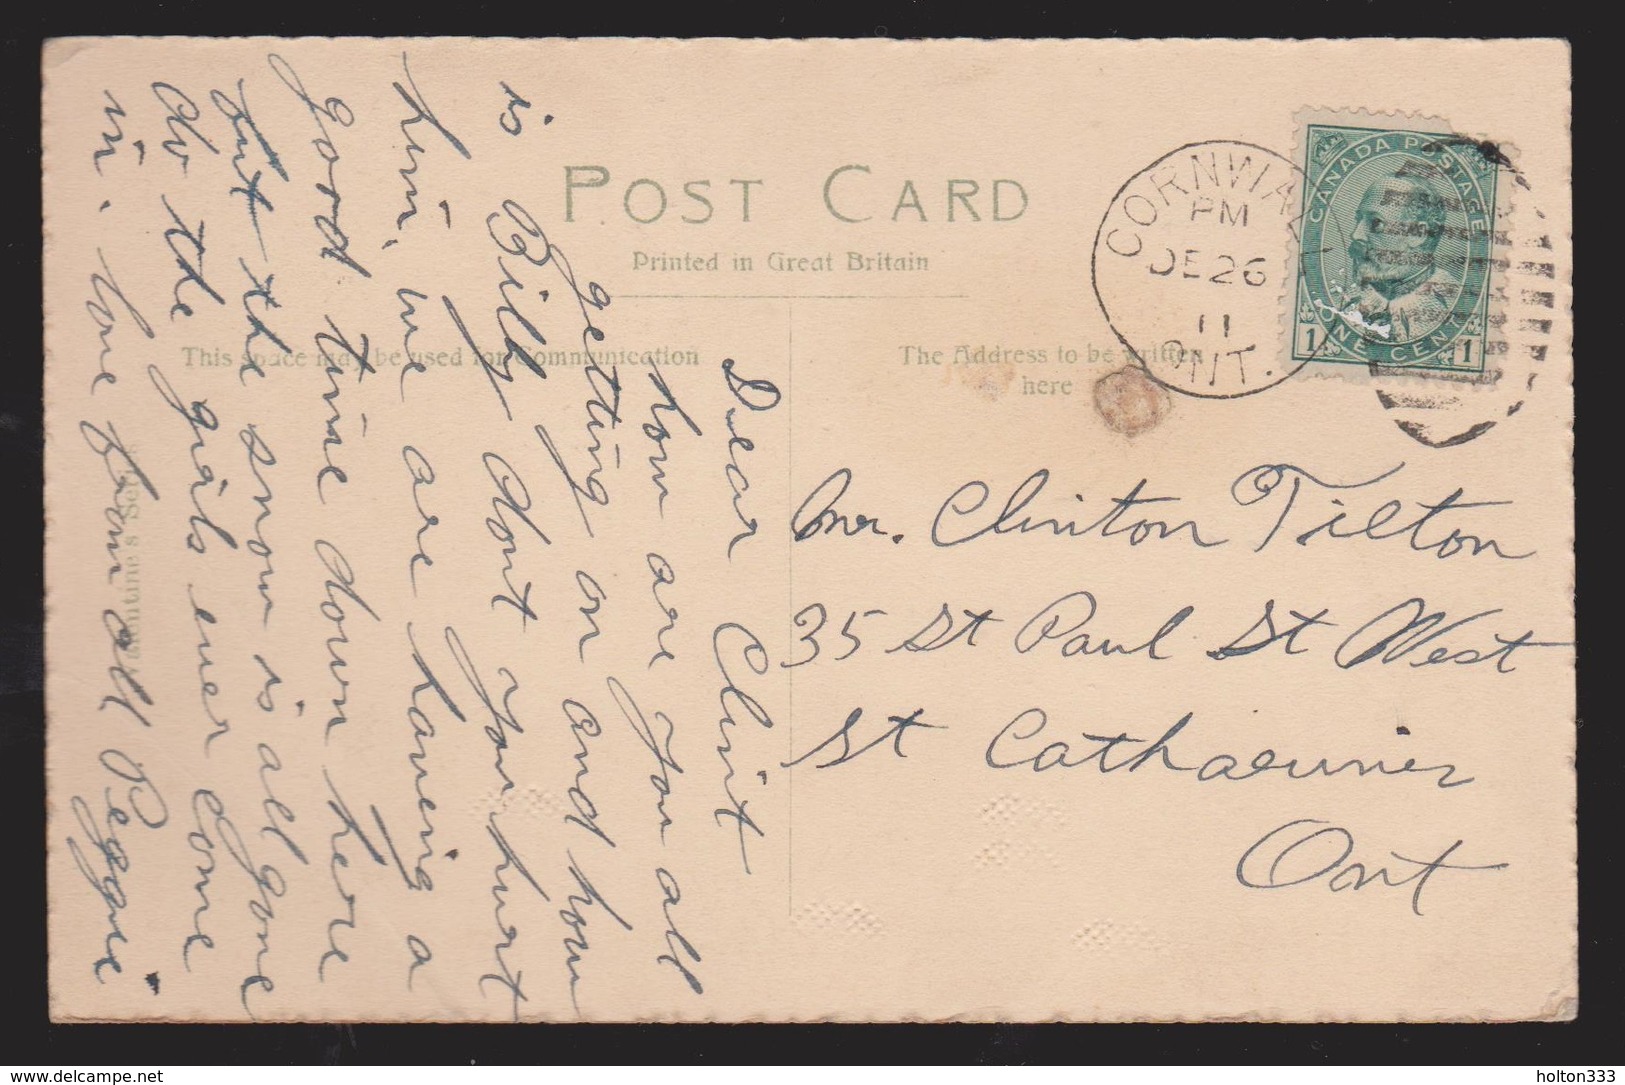 POST CARD
Printed in Great Britain
This space may be used for Communication
The Address to be written
here
CORNWALL
PM
DE 26
11
ONT.
CANADA POSTAGE
1 ONE CENT 1
Mr. Clinton Tilton
35 St Paul St West
St Catharines
Ont
Dear Clint
how are you all
getting on and how
is Billy dont you hurt
him, we are having a
good time down here
but the snow is all gone
do the girls ever come
in. love from all Peggie
Valentine's Series
delcampe.net
holton333